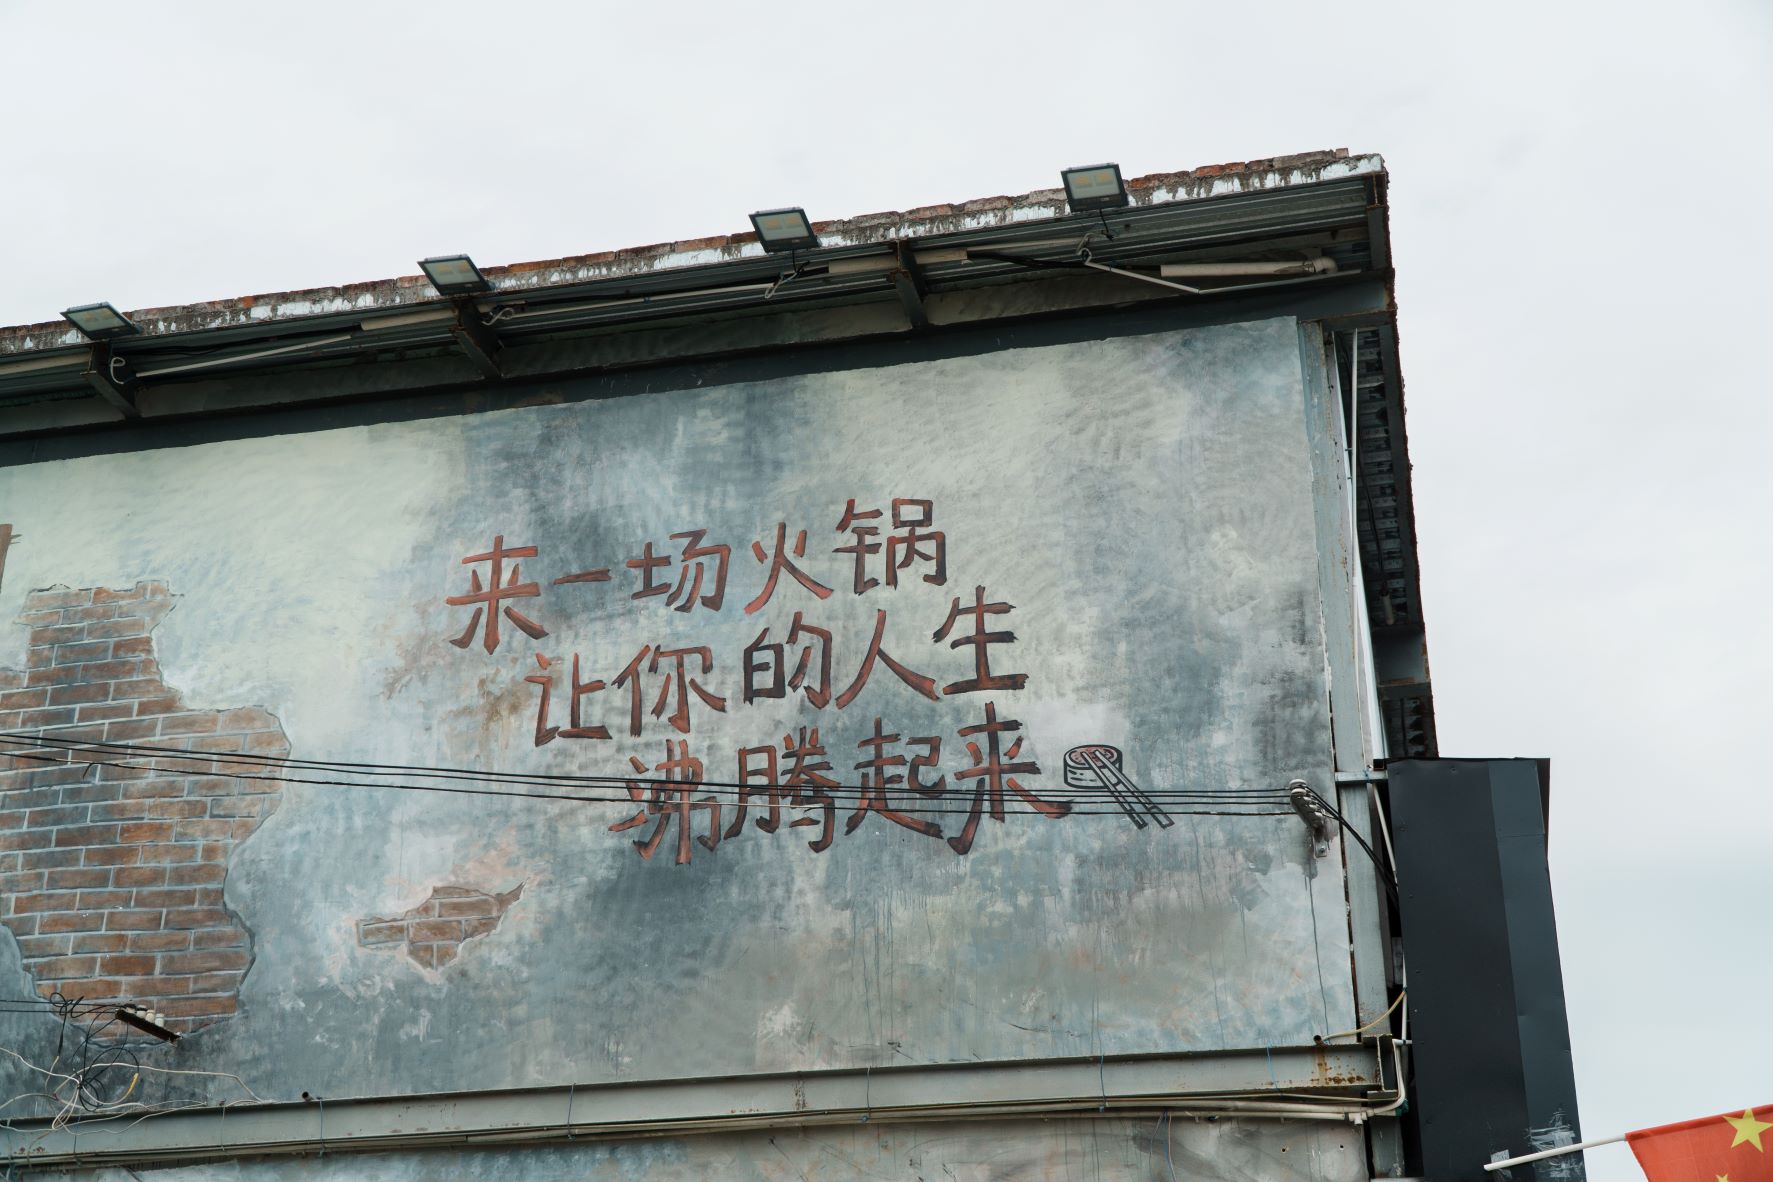 来一场火锅
让你的人生
沸腾起来